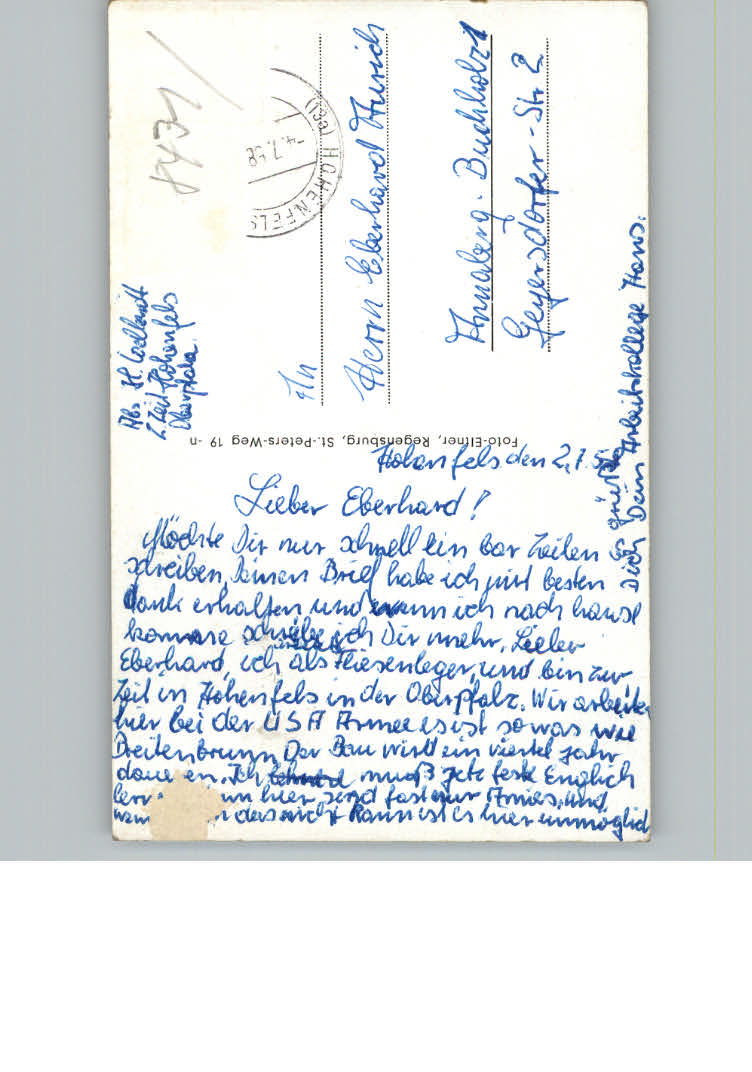 8431
(13a) HOHENFELS
-4.7.58
Abs. H.
z Zeit Hohenfels
Oberpfalz.
An
Herrn Eberhard
Annaberg-Buchholz 1
Geyersdorfer-Str. 2
Foto-Eltner, Regensburg, St.-Peters-Weg 19 -n
Hohenfels den 2.7.
Lieber Eberhard!
Möchte Dir nur schnell ein bar Zeilen
schreiben, Deinen Brief habe ich mit besten
dank erhalten und wenn ich nach hause
komme schreibe ich Dir mehr. Lieber
Eberhard, ich als Fliesenleger, und bin zur
Zeit in Hohenfels in der Oberpfalz. Wir arbeiten
hier bei der USA Armee es ist sowas wie
Breitenbrunn. Der Bau wird ein viertel jahr
dauern. Ich muß jetz feste Englich
hier sind fast nur Amies, und
das nicht kann ist es hier unmöglich
Es grüßt
Dich Dein Arbeitskollege Hans.